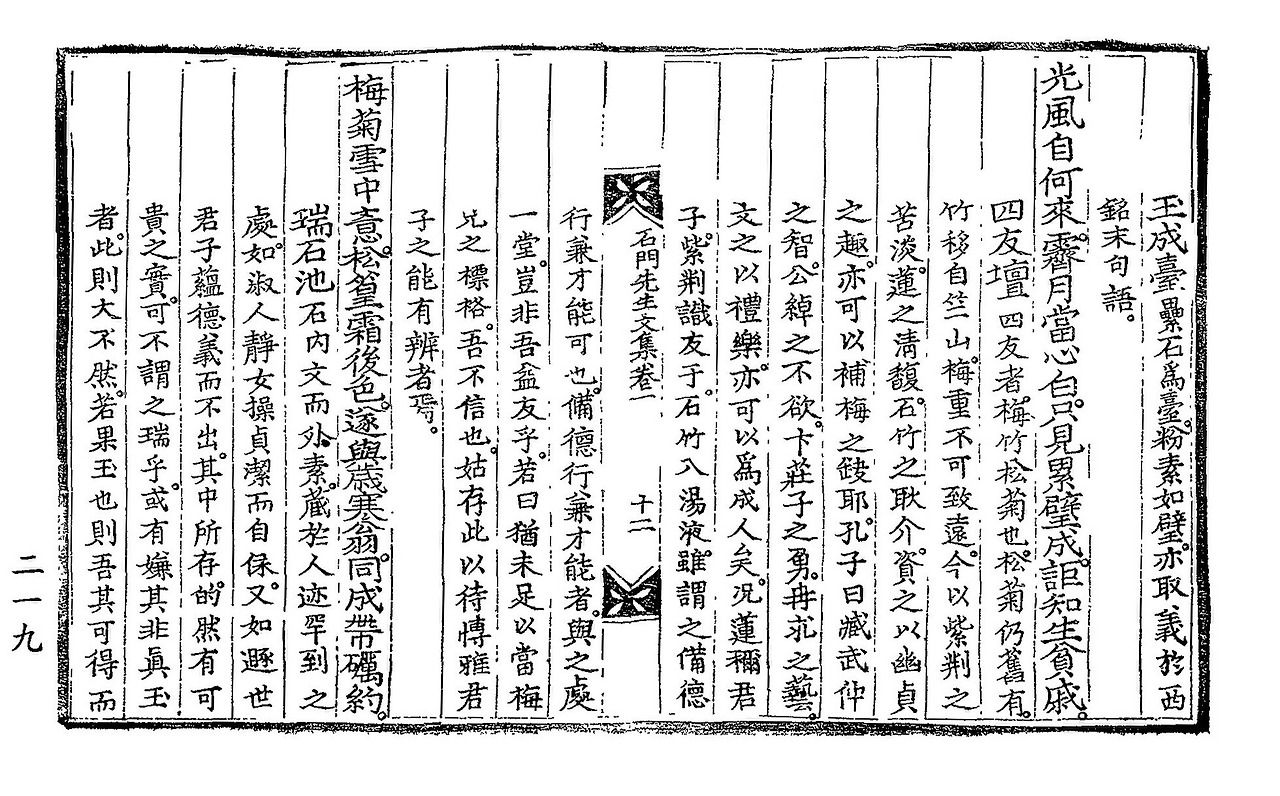 玉成臺壘石爲臺。粉素如璧。亦取義於西
銘末句語。
光風自何來。霽月當心白。只見累璧成。詎知生貧戚。
四友壇四友者。梅竹松菊也。松菊仍舊有。
竹移自竺山。梅重不可致遠。今以紫荊之
苦淡。蓮之淸馥。石竹之耿介。資之以幽貞
之趣。亦可以補梅之缺耶。孔子曰臧武仲
之智。公綽之不欲。卞莊子之勇。冉求之藝。
文之以禮樂。亦可以爲成人矣。况蓮稱君
子。紫荊識友于。石竹入湯液。雖謂之備德
石門先生文集卷一 十二
行兼才能可也。備德行兼才能者。與之處
一堂。豈非吾益友乎。若曰猶未足以當梅
兄之標格。吾不信也。姑存此以待博雅君
子之能有辨者焉。
梅菊雪中意。松篁霜後色。遂與歲寒翁。同成帶礪約。
瑞石池石內文而外素。藏於人迹罕到之
處。如淑人靜女操貞潔而自保。又如遯世
君子蘊德義而不出。其中所存的然有可
貴之實。可不謂之瑞乎。或有嫌其非眞玉
者。此則大不然。若果玉也則吾其可得而
二一九